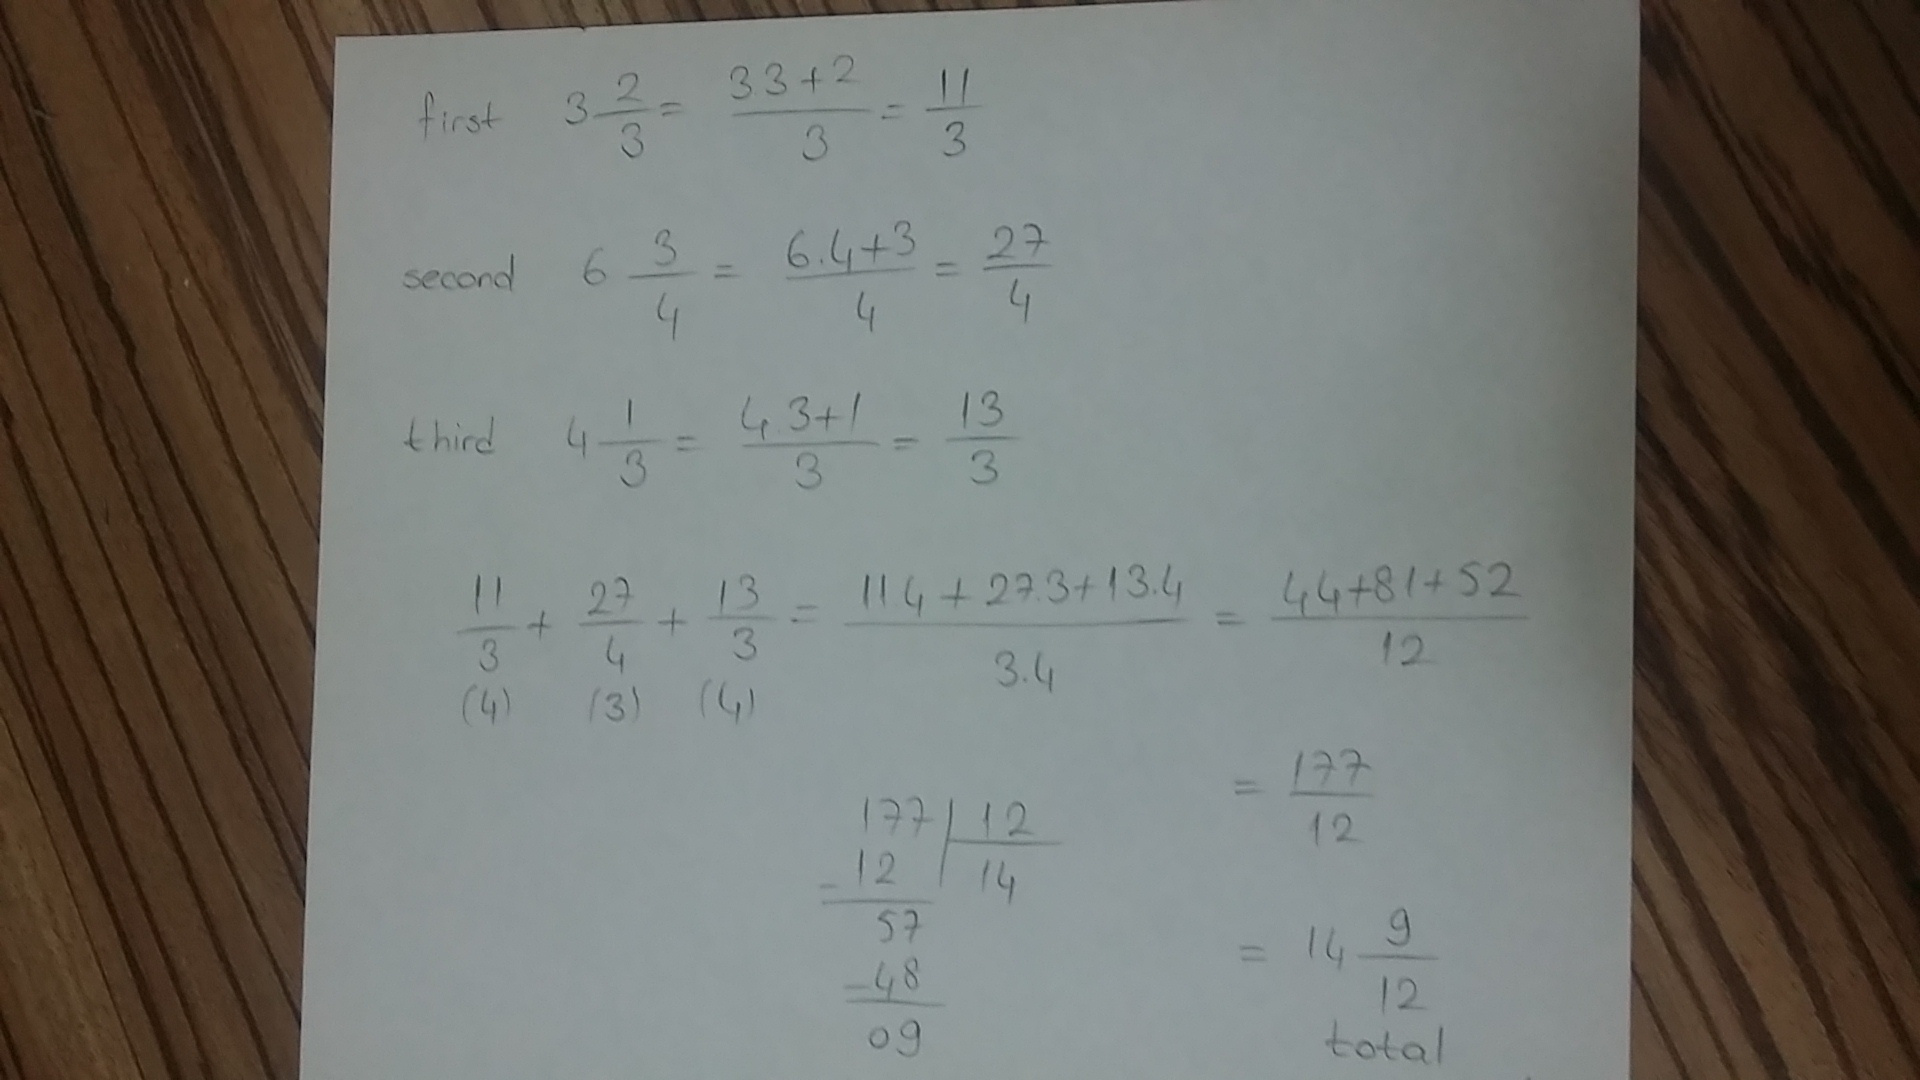 first 3 2/3 = 33+2/3 = 11/3
second 6 3/4 = 6.4+3/4 = 27/4
third 4 1/3 = 4.3+1/3 = 13/3
11/3 + 27/4 + 13/3 = 114+27.3+13.4/3.4 = 44+81+52/12
(4) (3) (4)
= 177/12
177 | 12
- 12 14
57
-48
09
= 14 9/12
total